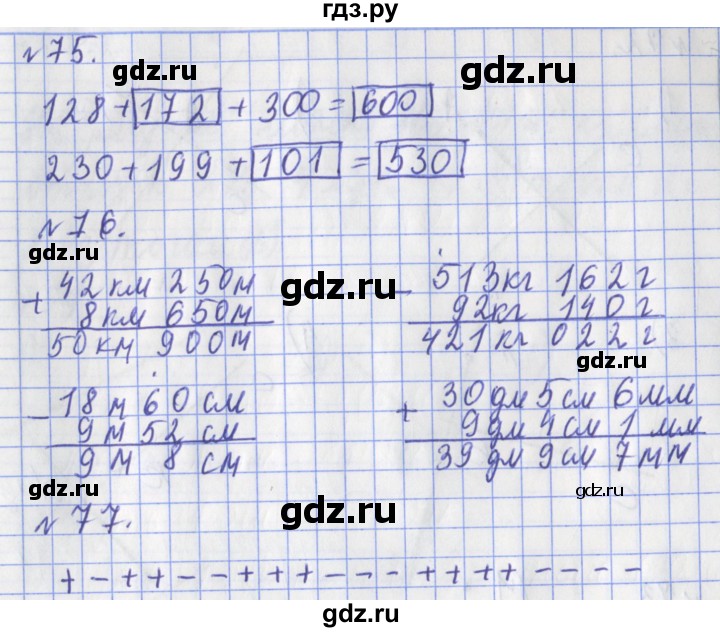 гдз.ру
№75.
gdz.ru
gdz.ru
128+172+300=600
230+199+101=530
№76.
gdz.ru
+ 42км 250м
8км 650м
50км 900м
gdz.ru
- 513кг 162г
92кг 140г
421кг 022г
gdz.ru
- 18м 60см
9м 52см
9м 8см
+ 30дм 5см 6мм
9дм 4см 1мм
39дм 9см 7мм
gdz.ru
gdz.ru
gdz.ru
№77.
+-++--+++---++++----
gdz.ru
gdz.ru